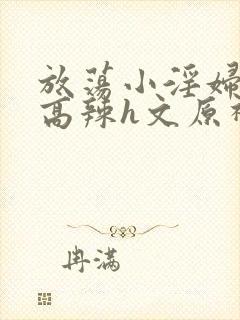 放荡小淫婦
高辣h文原
冉满